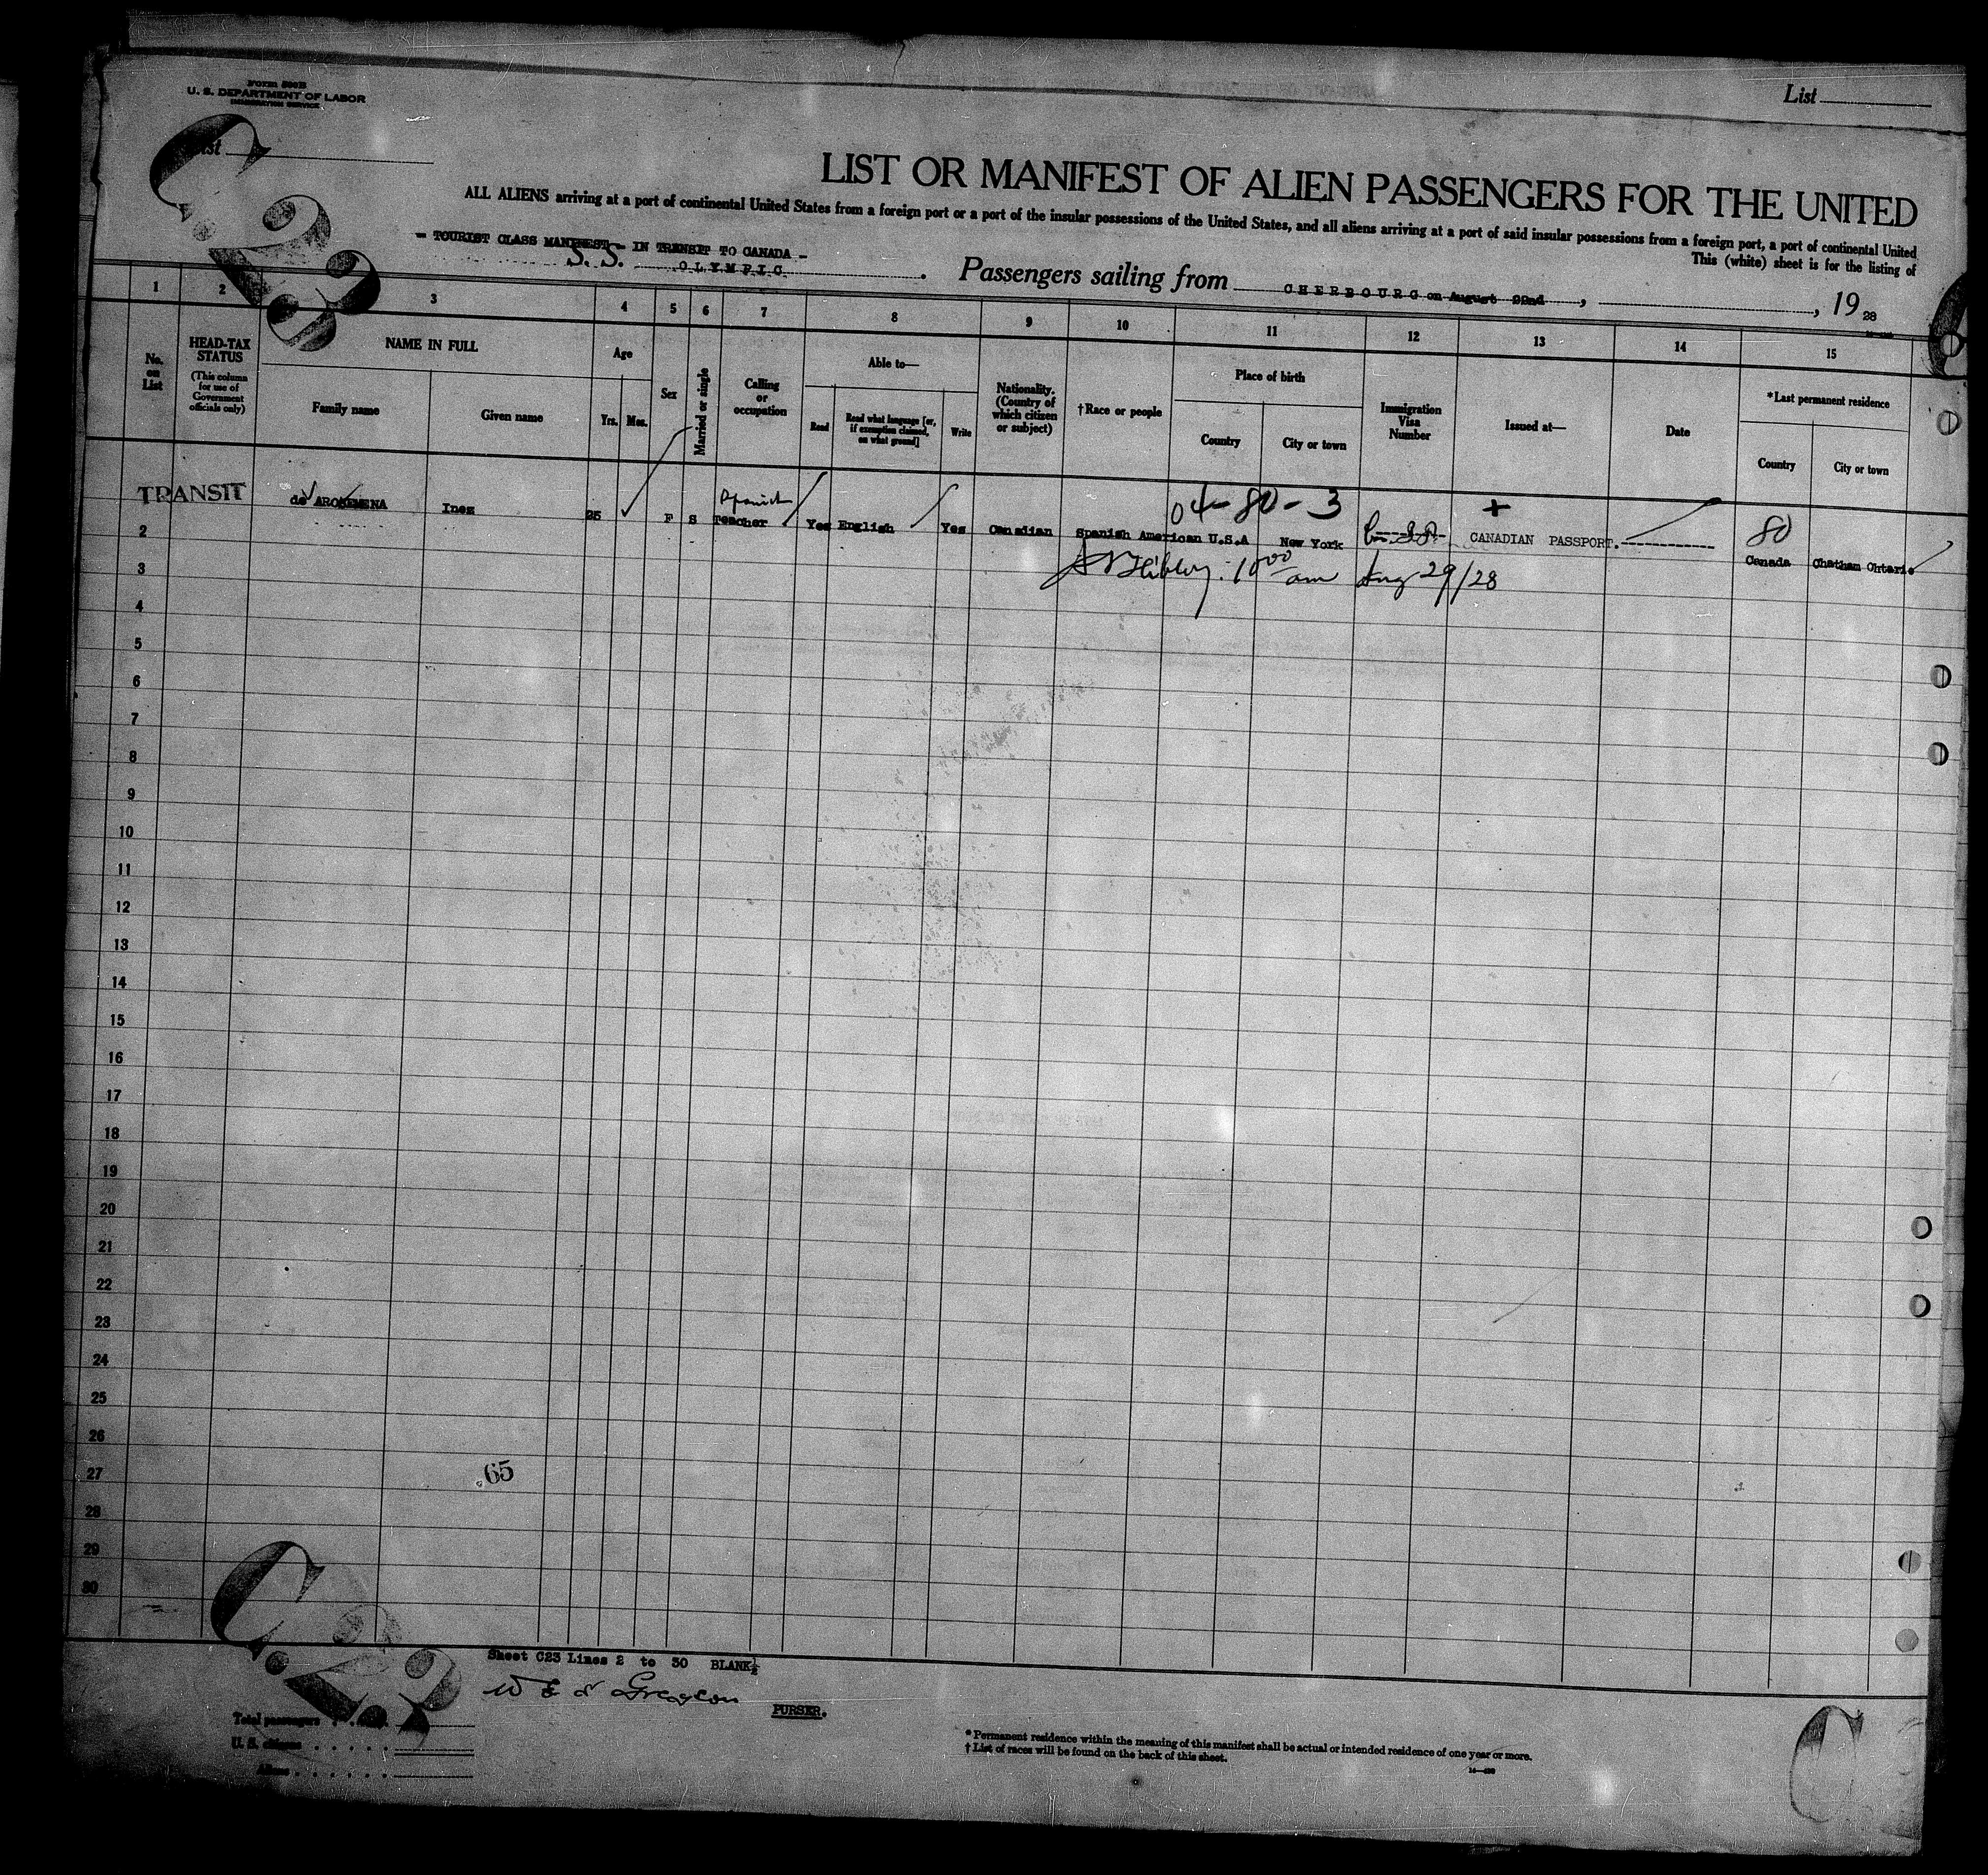 Form 500B
U. S. DEPARTMENT OF LABOR
IMMIGRATION SERVICE
List
List
C. 23
LIST OR MANIFEST OF ALIEN PASSENGERS FOR THE UNITED
ALL ALIENS arriving at a port of continental United States from a foreign port or a port of the insular possessions of the United States, and all aliens arriving at a port of said insular possessions from a foreign port, a port of continental United
This (white) sheet is for the listing of
- TOURIST CLASS MANIFEST - IN TRANSIT TO CANADA -
S. S. OLYMPIC. Passengers sailing from CHERBOURG on August 22nd, , 19 28
1 2 3 4 5 6 7 8 9 10 11 12 13 14 15
No. on List
HEAD-TAX STATUS (This column for use of Government officials only)
NAME IN FULL
Family name
Given name
Age
Yrs. Mos.
Sex
Married or single
Calling or occupation
Able to—
Read
Read what language [or, if exemption claimed, on what ground]
Write
Nationality. (Country of which citizen or subject)
†Race or people
Place of birth
Country
City or town
Immigration Visa Number
Issued at—
Date
*Last permanent residence
Country
City or town
Spanish 04-80-3 + 80
TRANSIT de AROSEMENA Inez 25 F S Teacher Yes English Yes Canadian Spanish American U.S.A New York CANADIAN PASSPORT. Canada Chatham Ontario
10 00 am Aug 29/28
2
3
4
5
6
7
8
9
10
11
12
13
14
15
16
17
18
19
20
21
22
23
24
25
26
27
65
28
29
30
C. 23
Sheet C23 Lines 2 to 30 BLANK
PURSER.
Total passengers
U. S. citizens
Aliens
*Permanent residence within the meaning of this manifest shall be actual or intended residence of one year or more.
†List of races will be found on the back of this sheet.
C